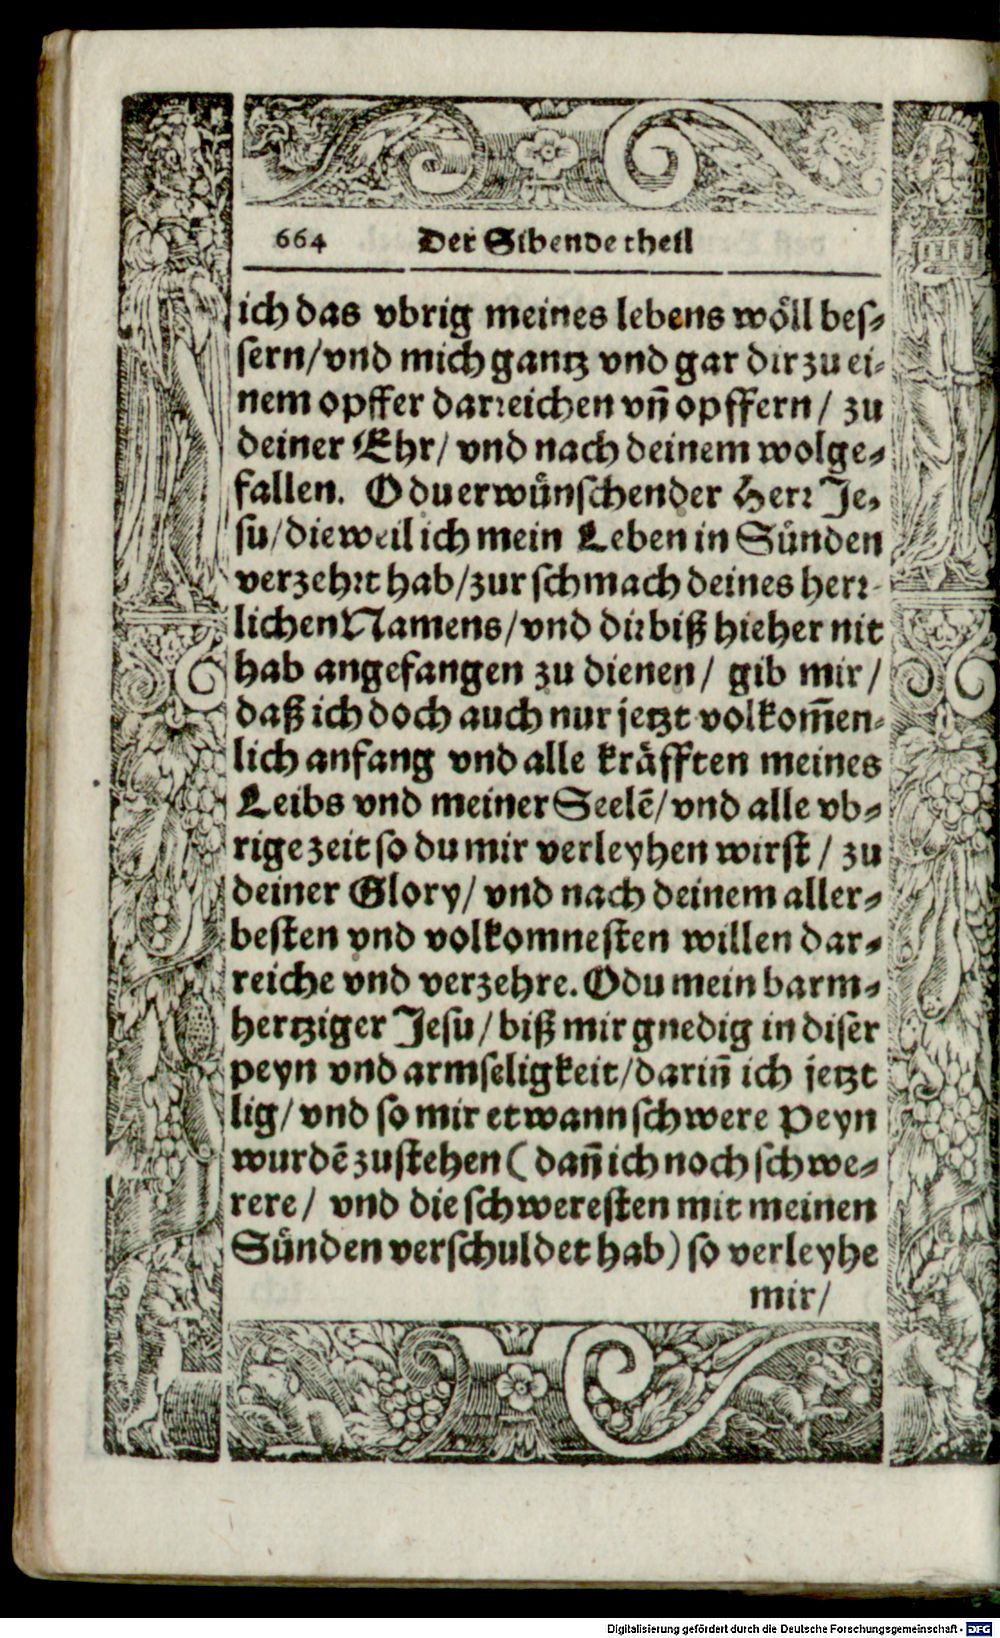 664 Der Sibende theil
ich das vbrig meines lebens wöll bes⸗
sern/vnd mich gantz vnd gar dir zu ei⸗
nem opffer darreichen vn̄ opffern/ zu
deiner Ehr/ vnd nach deinem wolge⸗
fallen. O du erwünschender Herr Je⸗
su/dieweil ich mein Leben in Sünden
verzehrt hab/zur schmach deines herr⸗
lichen Namens/vnd dir biß hieher nit
hab angefangen zu dienen/ gib mir/
daß ich doch auch nur jetzt volkom̄en⸗
lich anfang vnd alle kräfften meines
Leibs vnd meiner Seelē/vnd alle vb⸗
rige zeit so du mir verleyhen wirst/ zu
deiner Glory/ vnd nach deinem aller⸗
besten vnd volkomnesten willen dar⸗
reiche vnd verzehre. O du mein barm⸗
hertziger Jesu/biß mir gnedig in diser
peyn vnd armseligkeit/darin̄ ich jetzt
lig/vnd so mir etwann schwere Peyn
wurdē zustehen (dan̄ ich noch schwe⸗
rere/ vnd die schweresten mit meinen
Sünden verschuldet hab) so verleyhe
mir/
Digitalisierung gefördert durch die Deutsche Forschungsgemeinschaft - DFG